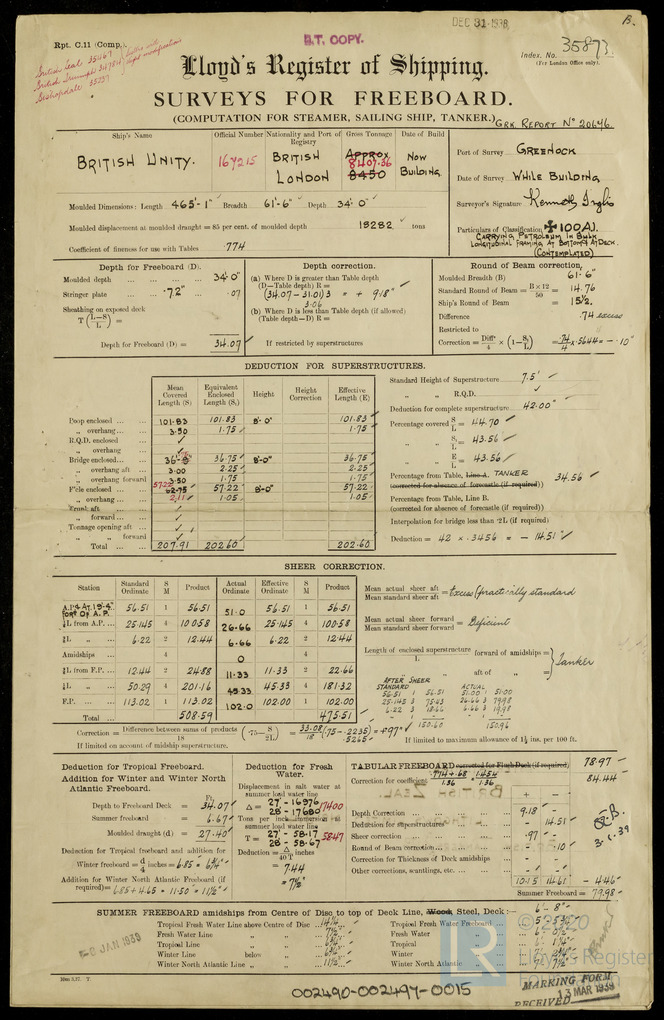 DEC 31 1938
B.
B.T. COPY.
Rpt. C.11 (Comp).
British Zeal 35467
British Triumph 34784
Bishopdale 35239
Index. No. 35873.
(For London Office only).
Lloyd's Register of Shipping.
SURVEYS FOR FREEBOARD.
(COMPUTATION FOR STEAMER, SAILING SHIP, TANKER.)
GRK. REPORT No 20646.
Ship's Name
Official Number
Nationality and Port of Registry
Gross Tonnage
Date of Build
BRITISH UNITY.
167215
BRITISH
LONDON
APPROX
8407.36
8450
NOW
BUILDING
Port of Survey GREENOCK
Date of Survey WHILE BUILDING
Surveyor's Signature Kenneth Inglis
Particulars of Classification 100A1.
CARRYING PETROLEUM IN BULK
LONGITUDINAL FRAMING AT BOTTOM & AT DECK.
(CONTEMPLATED)
Moulded Dimensions: Length 465'-1" Breadth 61'-6" Depth 34'-0"
Moulded displacement at moulded draught = 85 per cent. of moulded depth 18282 tons
Coefficient of fineness for use with Tables .774
Depth for Freeboard (D).
Moulded depth ... ... ... ... 34.0"
Stringer plate ... ... .72" .07
Sheathing on exposed deck
T (L-S/L) =
Depth for Freeboard (D) = 34.07
Depth correction.
(a) Where D is greater than Table depth
(D—Table depth) R =
(34.07 - 31.01) 3 = + 9.18"
3.06
(b) Where D is less than Table depth (if allowed)
(Table depth—D) R =
If restricted by superstructures
Round of Beam correction.
Moulded Breadth (B) 61.6"
Standard Round of Beam = B × 12 / 50 = 14.76
Ship's Round of Beam = 15½.
Difference .74 excess
Restricted to
Correction = Diff. / 4 × (1 - S₁/L) = .74/4 × .5644 = - .10"
DEDUCTION FOR SUPERSTRUCTURES.
Mean Covered Length (S)
Equivalent Enclosed Length (S₁)
Height
Height Correction
Effective Length (E)
Poop enclosed ... ... 101.83 101.83 8'-0" 101.83
„ overhang ... ... 3.50 1.75 1.75
R.Q.D. enclosed
„ overhang
Bridge enclosed... ... 36.75 8'-0" 36.75
„ overhang aft ... 3.00 2.25 2.25
„ overhang forward 3.50 1.75 1.75
F'cle enclosed ... ... 57.22 62.75 57.22 8'-0" 57.22
„ overhang ... ... 2.11 1.05 1.05
Trunk aft ...
„ forward ...
Tonnage opening aft ...
„ „ forward
Total ... 207.91 202.60 202.60
Standard Height of Superstructure 7.5'
„ „ R.Q.D.
Deduction for complete superstructure 42.00"
Percentage covered S/L = 44.70
„ „ S₁/L = 43.56
„ „ E/L = 43.56
Percentage from Table, Line A. TANKER 34.56
(corrected for absence of forecastle (if required))
Percentage from Table, Line B.
(corrected for absence of forecastle (if required))
Interpolation for bridge less than ·2L (if required)
Deduction = 42 × .3456 = - 14.51"
SHEER CORRECTION.
Station
Standard Ordinate
S M
Product
Actual Ordinate
Effective Ordinate
S M
Product
A.P. & AT 19'-4" FORD OF A.P. 56.51 1 56.51 51.0 56.51 1 56.51
⅙L from A.P. ... 25.145 4 100.58 26.66 25.145 4 100.58
⅓L „ ... 6.22 2 12.44 6.66 6.22 2 12.44
Amidships ... 4 0 4
⅓L from F.P. ... 12.44 2 24.88 11.33 11.33 2 22.66
⅙L „ ... 50.29 4 201.16 45.33 45.33 4 181.32
F.P. ... ... 113.02 1 113.02 102.0 102.00 1 102.00
Total ... 508.59 475.51
Mean actual sheer aft
Mean standard sheer aft = Excess (practically standard
Mean actual sheer forward
Mean standard sheer forward = Deficient
Length of enclosed superstructure forward of amidships =
L
„ aft of „ =
Tanker
AFTER SHEER
STANDARD
ACTUAL
56.51 1 56.51
51.00 1 51.00
25.145 3 75.43
26.66 3 79.98
6.22 3 18.66
6.66 3 19.98
150.60
150.96
Correction = Difference between sums of products / 18 (·75 - S/2L) = 33.08/18 (.75 - .2235) = + .97"
.5265
If limited on account of midship superstructure.
If limited to maximum allowance of 1½ ins. per 100 ft.
Deduction for Tropical Freeboard.
Addition for Winter and Winter North Atlantic Freeboard.
Depth to Freeboard Deck = 34.07
Summer freeboard = 6.67
Moulded draught (d) = 27.40
Deduction for Tropical freeboard and addition for
Winter freeboard = d/4 inches = 6.85 = 6¾"
Addition for Winter North Atlantic Freeboard (if required) = 6.85 + 4.65 = 11.50 = 11½"
Deduction for Fresh Water.
Displacement in salt water at summer load water line
Δ = 27' - 16976
28 - 17680
17400
Tons per inch immersion at summer load water line
T = 27' - 58.17
28 - 58.67
58.47
Deduction = Δ / 40 T inches
= 7.44
= 7½"
TABULAR FREEBOARD corrected for Flush Deck (if required) 78.97
Correction for coefficient .774 + .68 / 1.36 1.454 / 1.36 84.44
+ -
Depth Correction ... ... 9.18 -
Deduction for superstructures - 14.51
Sheer correction ... .97 -
Round of Beam correction... - .10
Correction for Thickness of Deck amidships - -
Other corrections, scantlings, etc. ... - -
10.15 14.61 - 4.46
Summer Freeboard = 79.98
3.1.39
SUMMER FREEBOARD amidships from Centre of Disc to top of Deck Line, Wood, Steel, Deck :— 6' - 8"
Tropical Fresh Water Line above Centre of Disc ... 14¼
Fresh Water Line „ „ ... 7½
Tropical Line „ „ ... 6¾
Winter Line below „ ... 6¾
Winter North Atlantic Line „ „ ... 11½
Tropical Fresh Water Freeboard ... 5' - 5¾"
Fresh Water „ ... 6' - 0½"
Tropical „ ... 6' - 1¼"
Winter „
Winter North Atlantic „ 7' - 7½"
-6 JAN 1939
© 2020
Lloyd's Register
Foundation
LR
MARKING FORM
13 MAR 1939
RECEIVED
002490-002497-0015